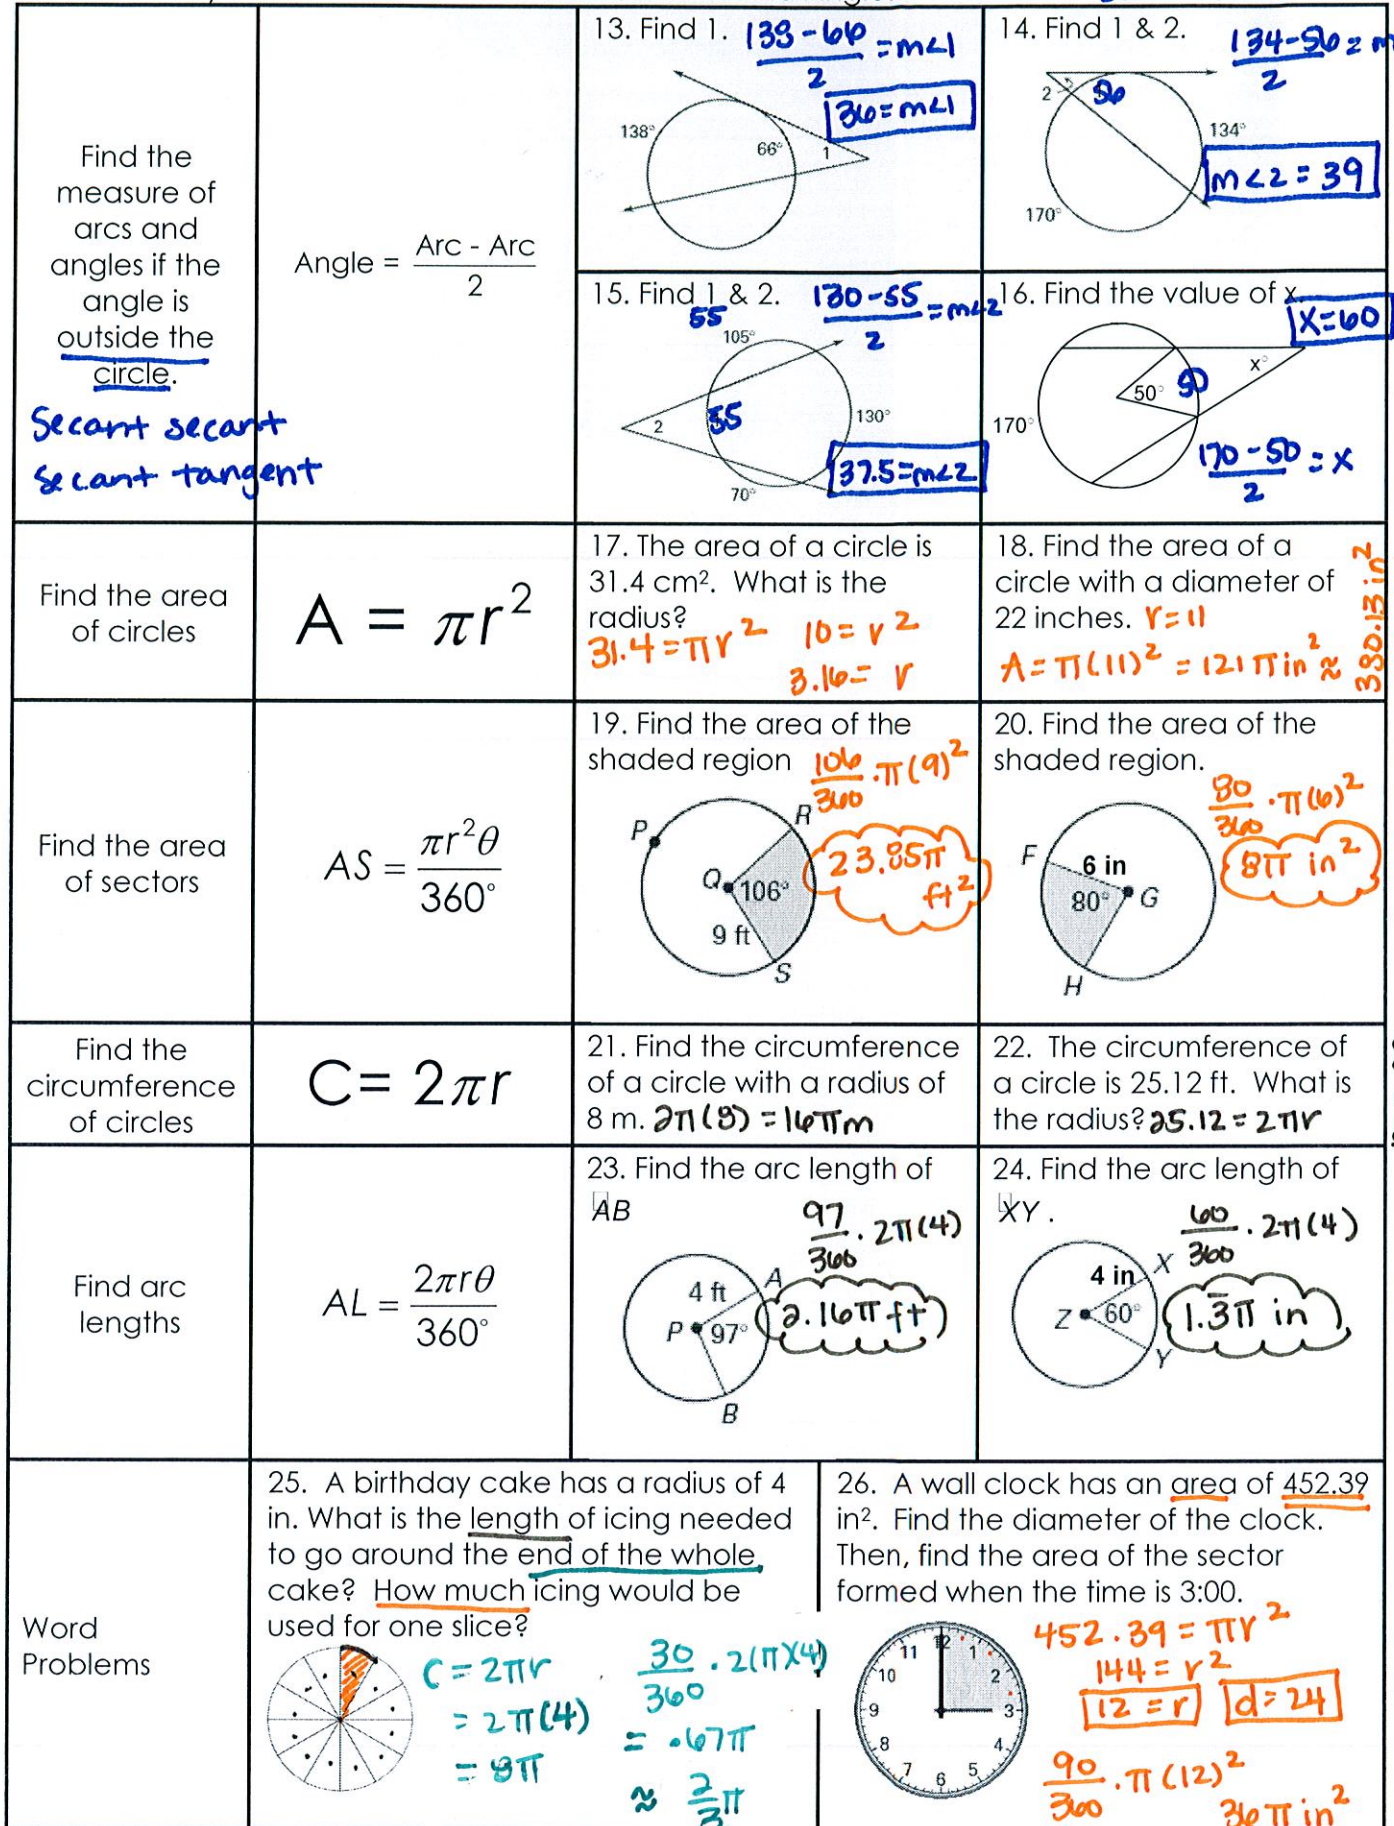 Find the
measure of
arcs and
angles if the
angle is
outside the
circle.
Secant secant
Secant tangent
Angle = Arc - Arc / 2
13. Find 1.
138-66 / 2 = m<1
36=m<1
138°
66°
1
14. Find 1 & 2.
134-56 = m
2
2
56
134°
m<2 = 39
170°
15. Find 1 & 2.
55
130-55 / 2 = m<2
105°
2
55
130°
37.5=m<2
70°
16. Find the value of x.
x=60
x°
50°
50
170°
170-50 / 2 = x
Find the area
of circles
A = πr²
17. The area of a circle is
31.4 cm². What is the
radius?
31.4=πr² 10=r²
3.16= r
18. Find the area of a
circle with a diameter of
22 inches. r=11
A=π(11)² = 121πin² ≈
380.13 in²
Find the area
of sectors
AS = πr²θ / 360°
19. Find the area of the
shaded region
106 / 360 · π(9)²
P
R
Q
106°
9 ft
S
23.85π
ft²
20. Find the area of the
shaded region.
80 / 360 · π(6)²
F
6 in
80°
G
H
8π in²
Find the
circumference
of circles
C= 2πr
21. Find the circumference
of a circle with a radius of
8 m. 2π(8) = 16πm
22. The circumference of
a circle is 25.12 ft. What is
the radius? 25.12=2πr
Find arc
lengths
AL = 2πrθ / 360°
23. Find the arc length of
AB
97 / 360 · 2π(4)
4 ft
A
P
97°
B
2.16π ft
24. Find the arc length of
XY .
60 / 360 · 2π(4)
4 in
X
Z
60°
Y
1.3̅π in
Word
Problems
25. A birthday cake has a radius of 4
in. What is the length of icing needed
to go around the end of the whole
cake? How much icing would be
used for one slice?
C = 2πr
= 2π(4)
= 8π
30 / 360 · 2(π)(4)
= .67π
≈ 2/3 π
26. A wall clock has an area of 452.39
in². Find the diameter of the clock.
Then, find the area of the sector
formed when the time is 3:00.
12
1
2
3
4
5
6
7
8
9
10
11
452.39 = πr²
144 = r²
12 = r d=24
90 / 360 · π(12)²
36π in²